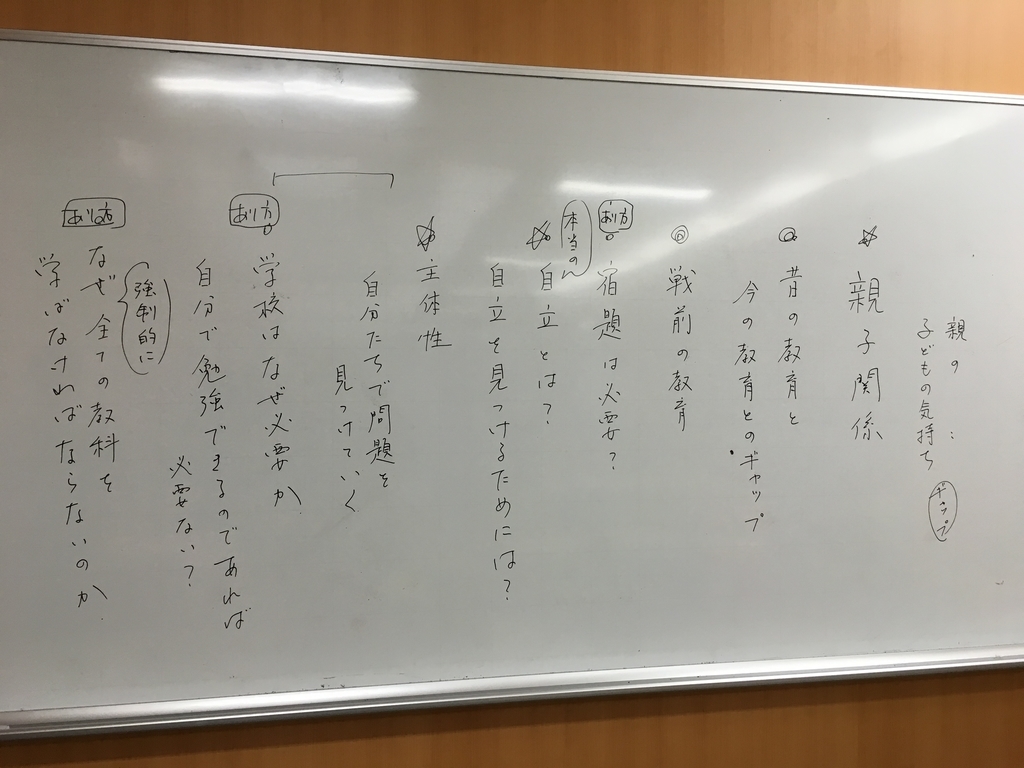 親の
子どもの気持ち
ギャップ
☆ 親子関係
◎ 昔の教育と
今の教育とのギャップ
◎ 戦前の教育
あり方
宿題は必要?
本当の
☆ 自立とは?
自立を見つけるためには?
☆ 主体性
自分たちで問題を
見つけていく
あり方
学校はなぜ必要か
自分で勉強できるのであれば
必要ない?
強制的に
あり方
なぜ全ての教科を
学ばなければならないのか